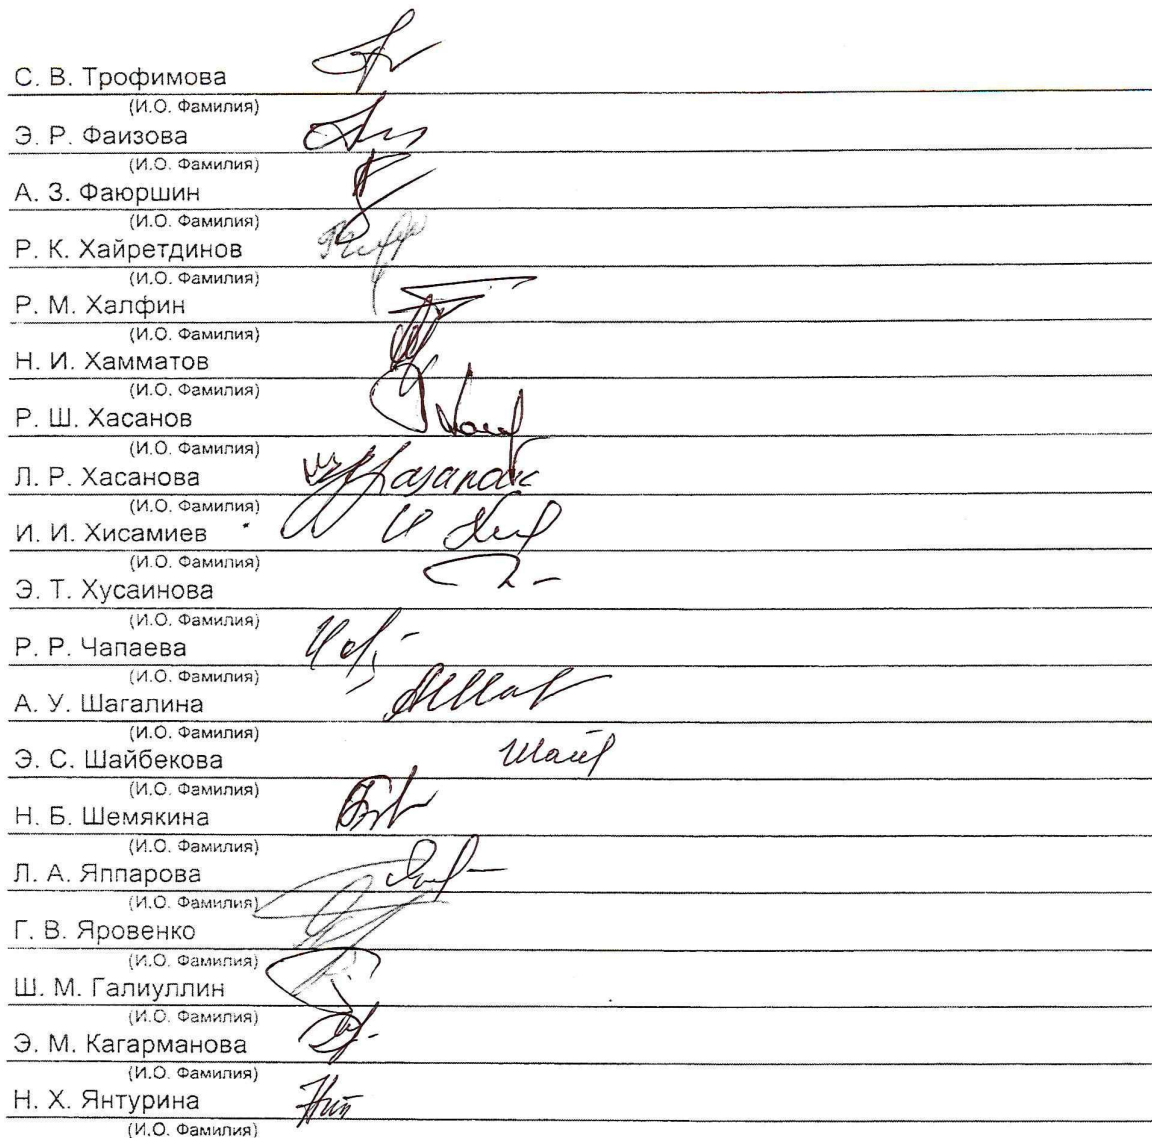 С. В. Трофимова
(И.О. Фамилия)
Э. Р. Фаизова
(И.О. Фамилия)
А. З. Фаюршин
(И.О. Фамилия)
Р. К. Хайретдинов
(И.О. Фамилия)
Р. М. Халфин
(И.О. Фамилия)
Н. И. Хамматов
(И.О. Фамилия)
Р. Ш. Хасанов
(И.О. Фамилия)
Л. Р. Хасанова
(И.О. Фамилия)
И. И. Хисамиев
(И.О. Фамилия)
Э. Т. Хусаинова
(И.О. Фамилия)
Р. Р. Чапаева
(И.О. Фамилия)
А. У. Шагалина
(И.О. Фамилия)
Э. С. Шайбекова
(И.О. Фамилия)
Н. Б. Шемякина
(И.О. Фамилия)
Л. А. Яппарова
(И.О. Фамилия)
Г. В. Яровенко
(И.О. Фамилия)
Ш. М. Галиуллин
(И.О. Фамилия)
Э. М. Кагарманова
(И.О. Фамилия)
Н. Х. Янтурина
(И.О. Фамилия)